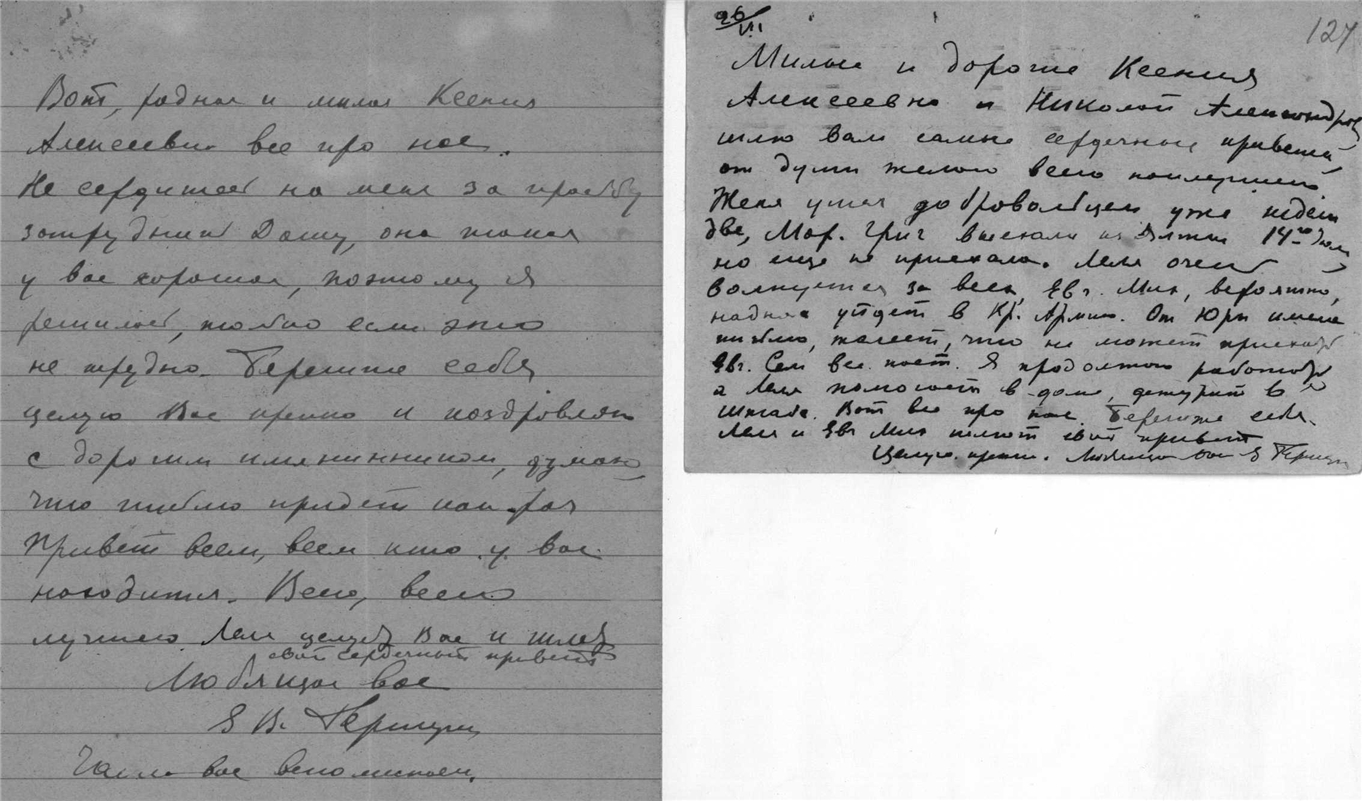 Вот, родная и милая Ксения
Алексеевна все про нас.
Не сердитесь на меня за просьбу
затруднить Дашу, она такая
у вас хорошая, поэтому я
решилась, только если это
не трудно. Берегите себя
целую Вас крепко и поздравляю
с дорогим имянинником, думаю,
что письмо придет как раз
Привет всем, всем кто у вас
находится. Всего, всего
лучшего. Леля целует Вас и шлет
свой сердечный привет
Любящая вас
Е В. Герцык
Часто вас вспоминаем.
26/VII
127
Милые и дорогие Ксения
Алексеевна и Николай Александров
шлю вам самые сердечные приветы,
от души желаю всего наилучшего.
Женя ушел добровольцем уже недели
две, Мар. Григ выехали из Ялты 14го
но еще не приехала. Леля очень
волнуется за всех, Евг. Мих, вероятно,
на днях уйдет в Кр. Армию. От Юры имела
письмо, жалеет, что не может приехать
Евг. все. Я продолжаю работать
а Леля помогает в доме, дежурит в
штабе. Вот все про нас. Берегите себя.
Леля и Евг Мих шлют свой привет
Целую крепко. Любящая вас Е Герцык